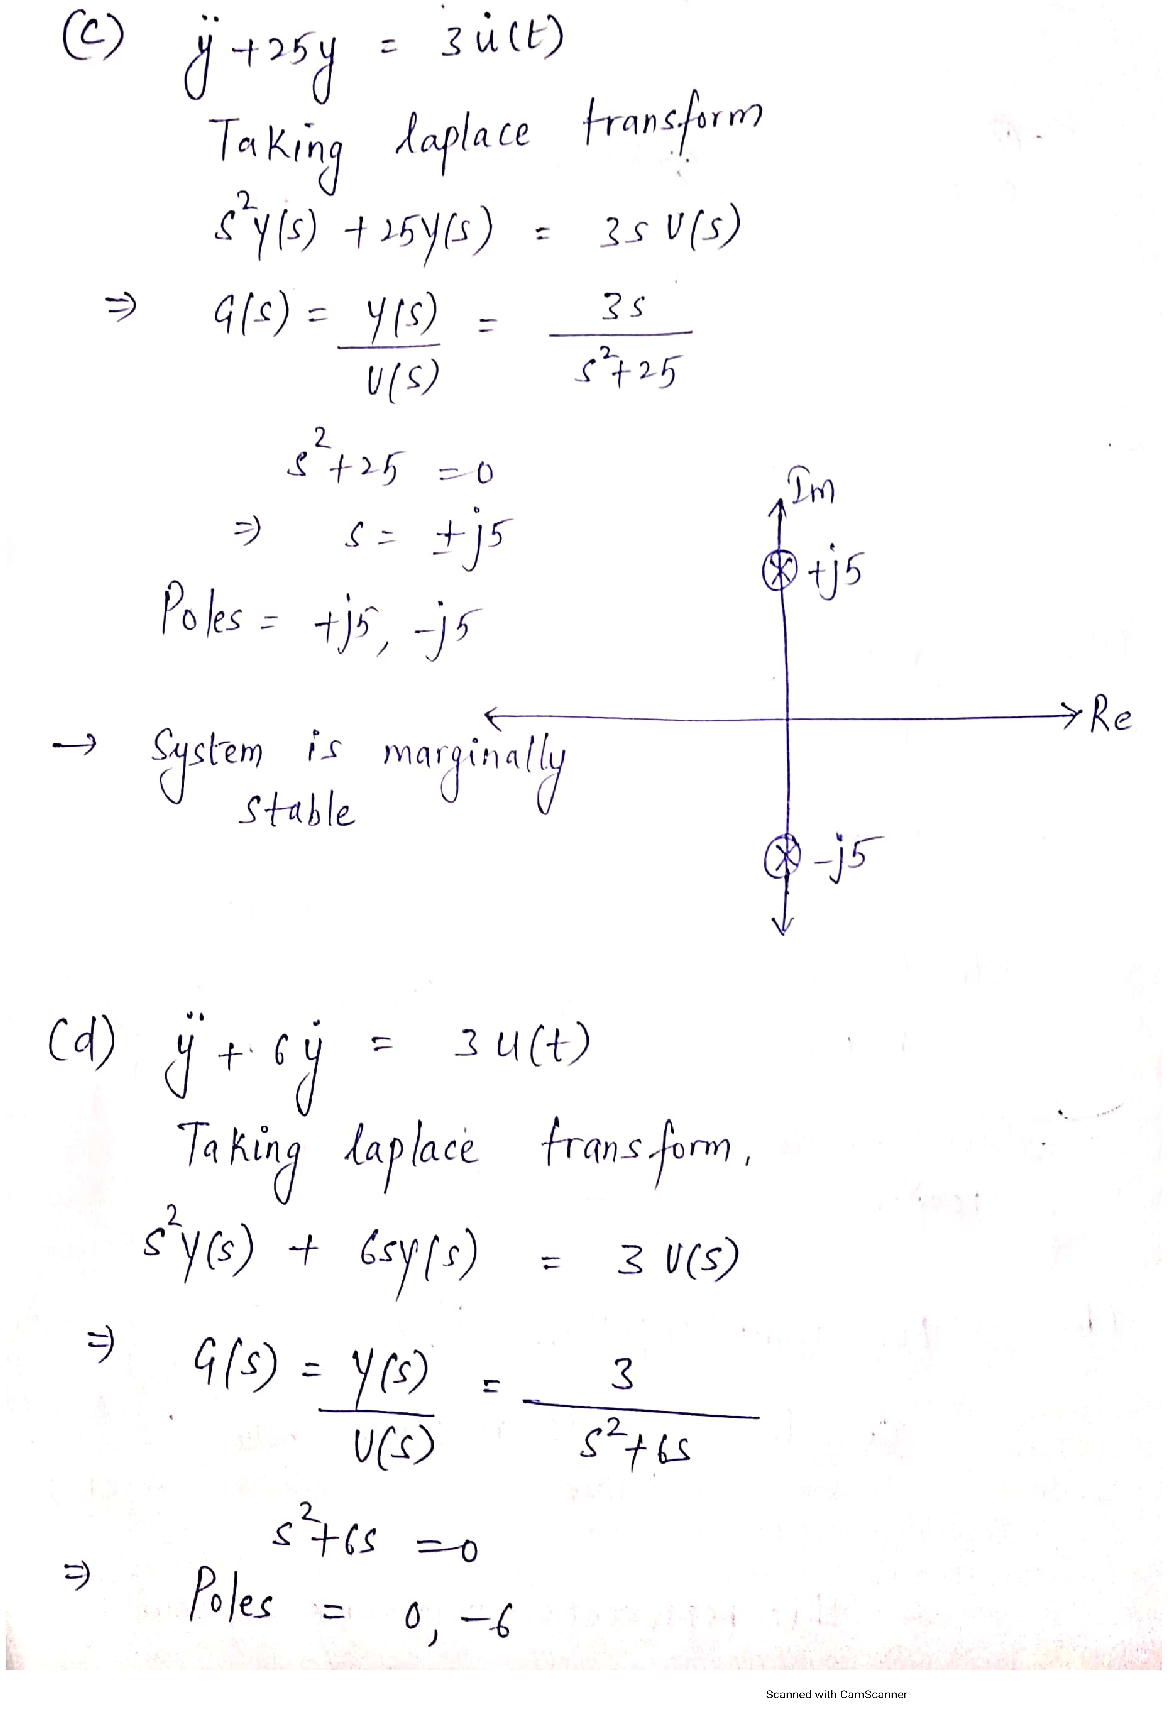 (c) ÿ + 25y = 3u̇(t)
Taking laplace transform
s²Y(s) + 25Y(s) = 3s U(s)
⇒ G(s) = Y(s)/U(s) = 3s/(s²+25)
s²+25 = 0
⇒ s = ±j5
Poles = +j5, -j5
Im
+j5
Re
→ System is marginally
stable
-j5
(d) ÿ + 6ẏ = 3u(t)
Taking laplace transform,
s²Y(s) + 6sY(s) = 3 U(s)
⇒ G(s) = Y(s)/U(s) = 3/(s²+6s)
s²+6s = 0
⇒ Poles = 0, -6
Scanned with CamScanner